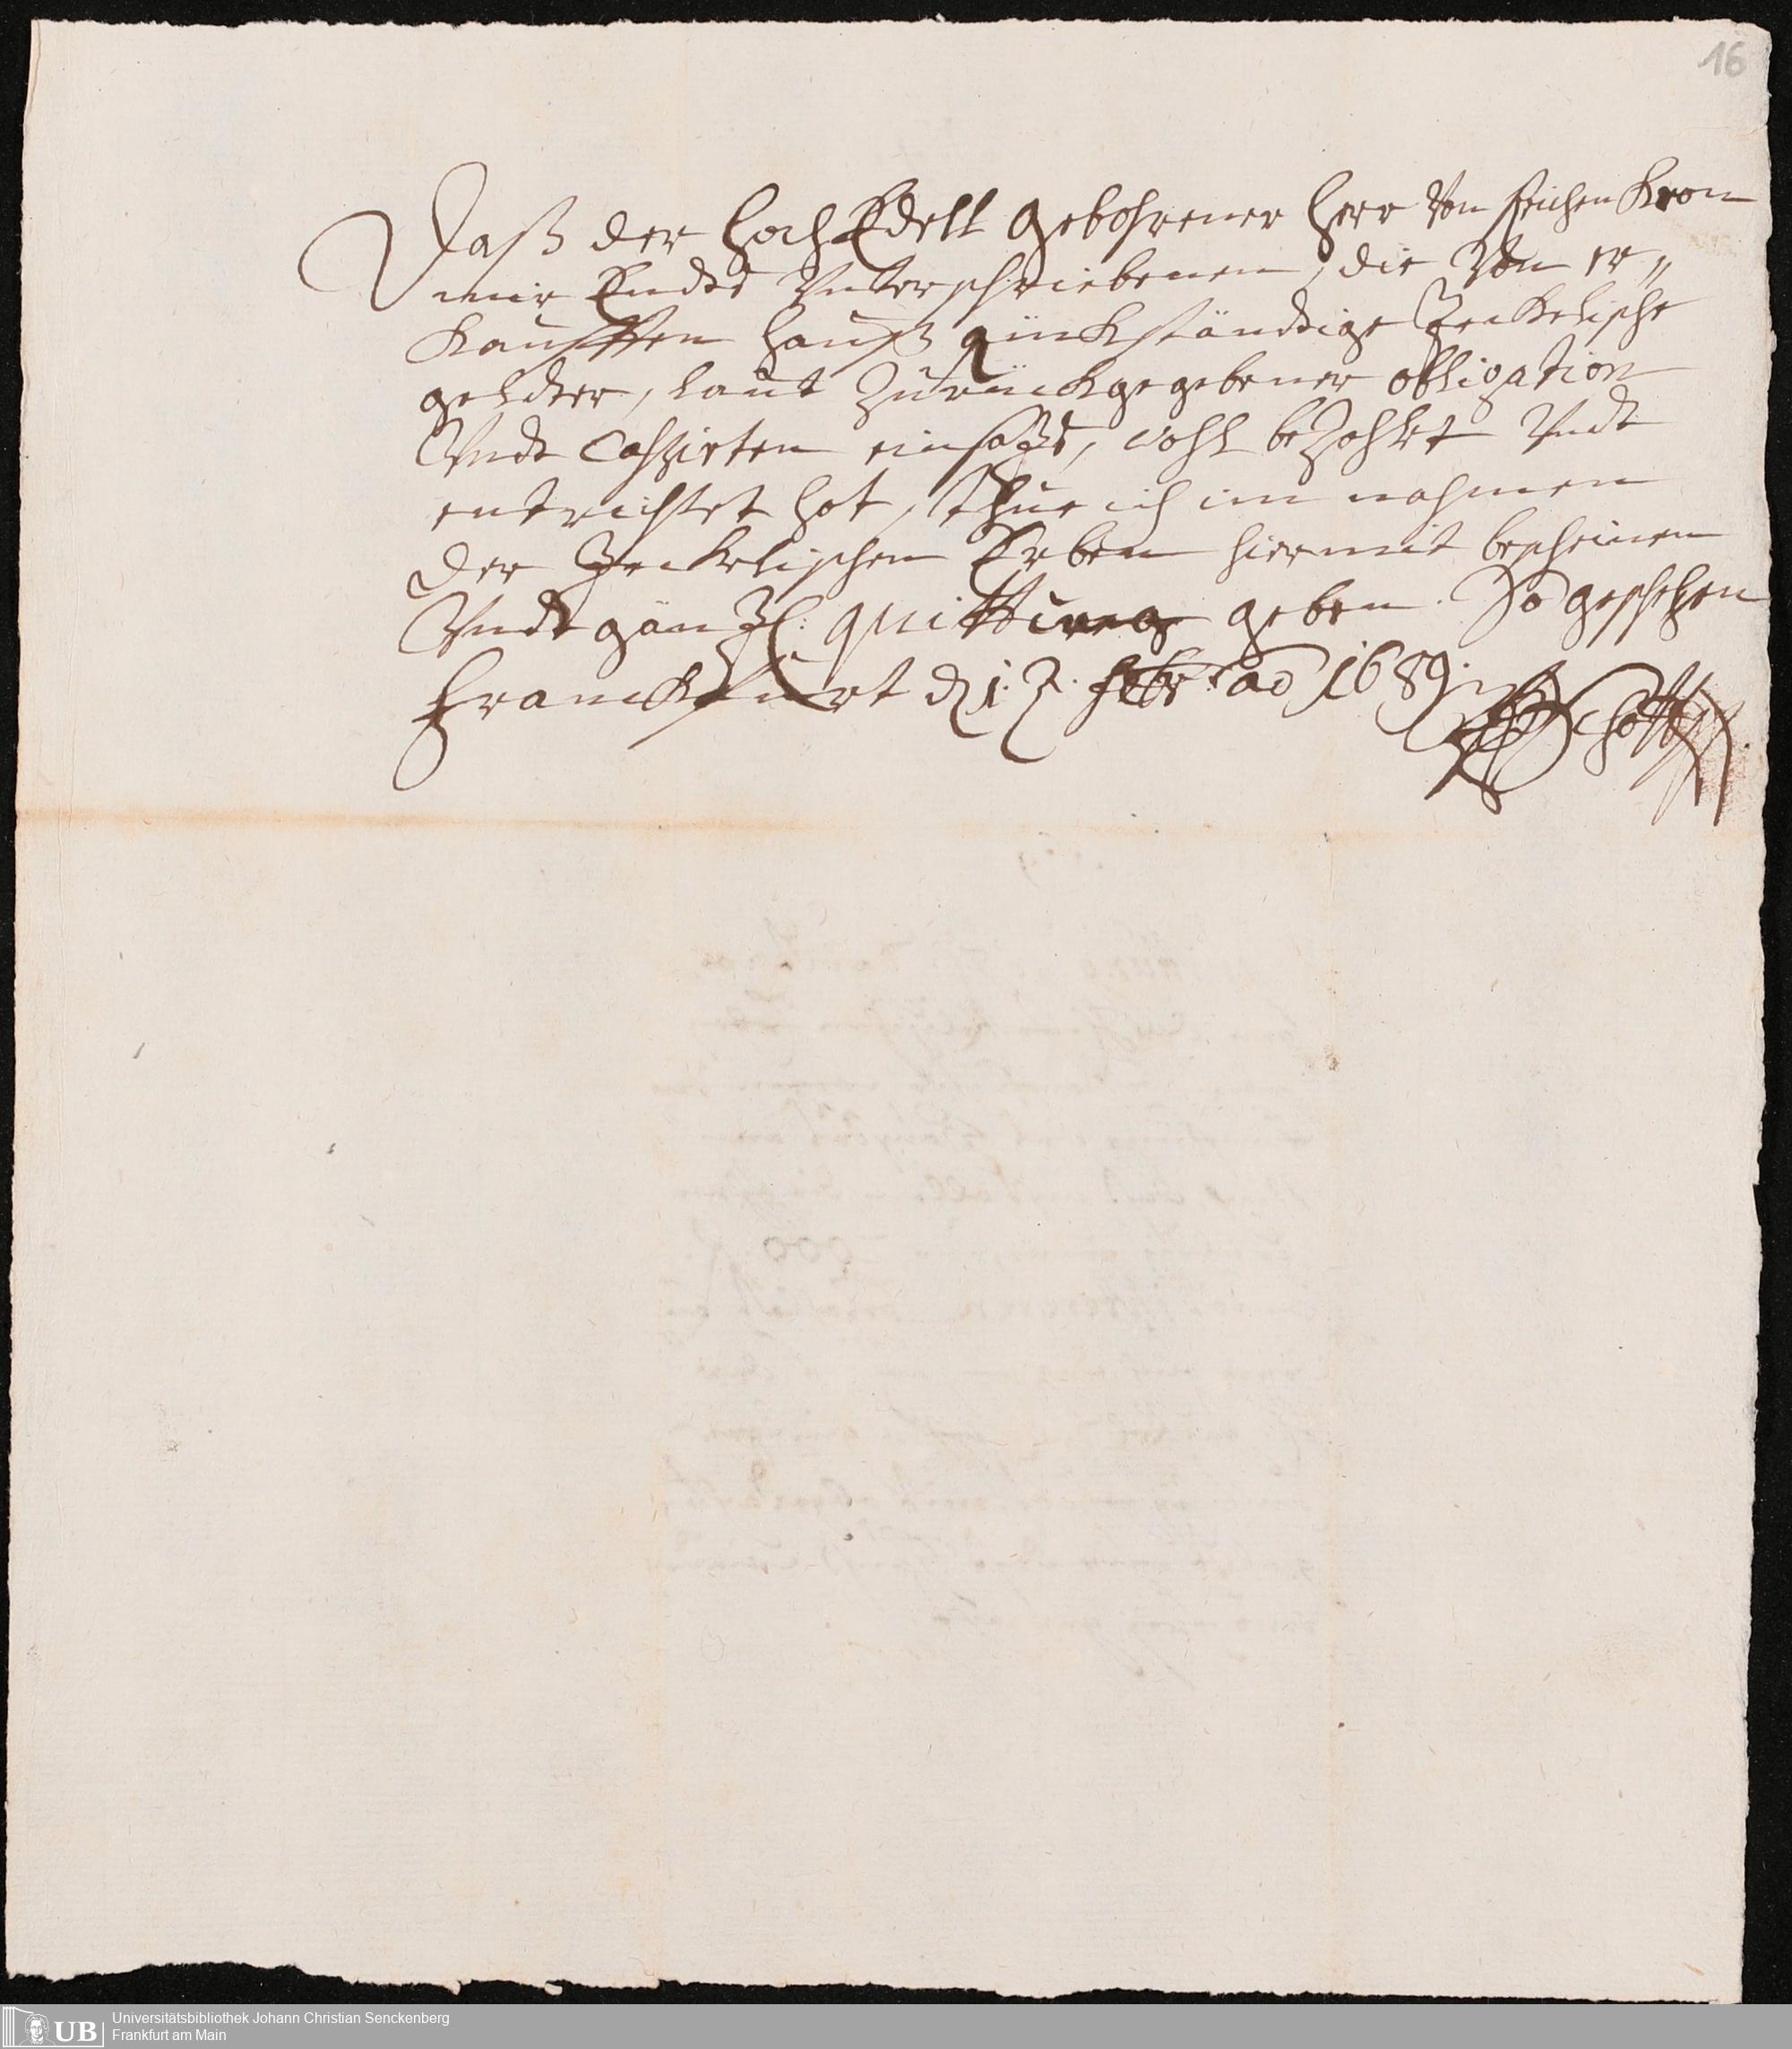 16
Daß der HochEdell gebohrener Herr Von Eichen Kron
mir Endts Vnterschriebenen, die Von er„
Kaufften Hauß rückständtige Jeckelische
geldter, laut Zurückgegebener obligation
Vndt Cassirten einsatzs, wohl bezahlet Vndt
entrichtet hat, thue ich im nahmen
der Jeckelischen Erben hiermit bescheinen
Vndt gäntzl: quittung geben. So geschehen
Franckfurt d 12. Febr. ao 1689.
Schott
UB
Universitätsbibliothek Johann Christian Senckenberg
Frankfurt am Main